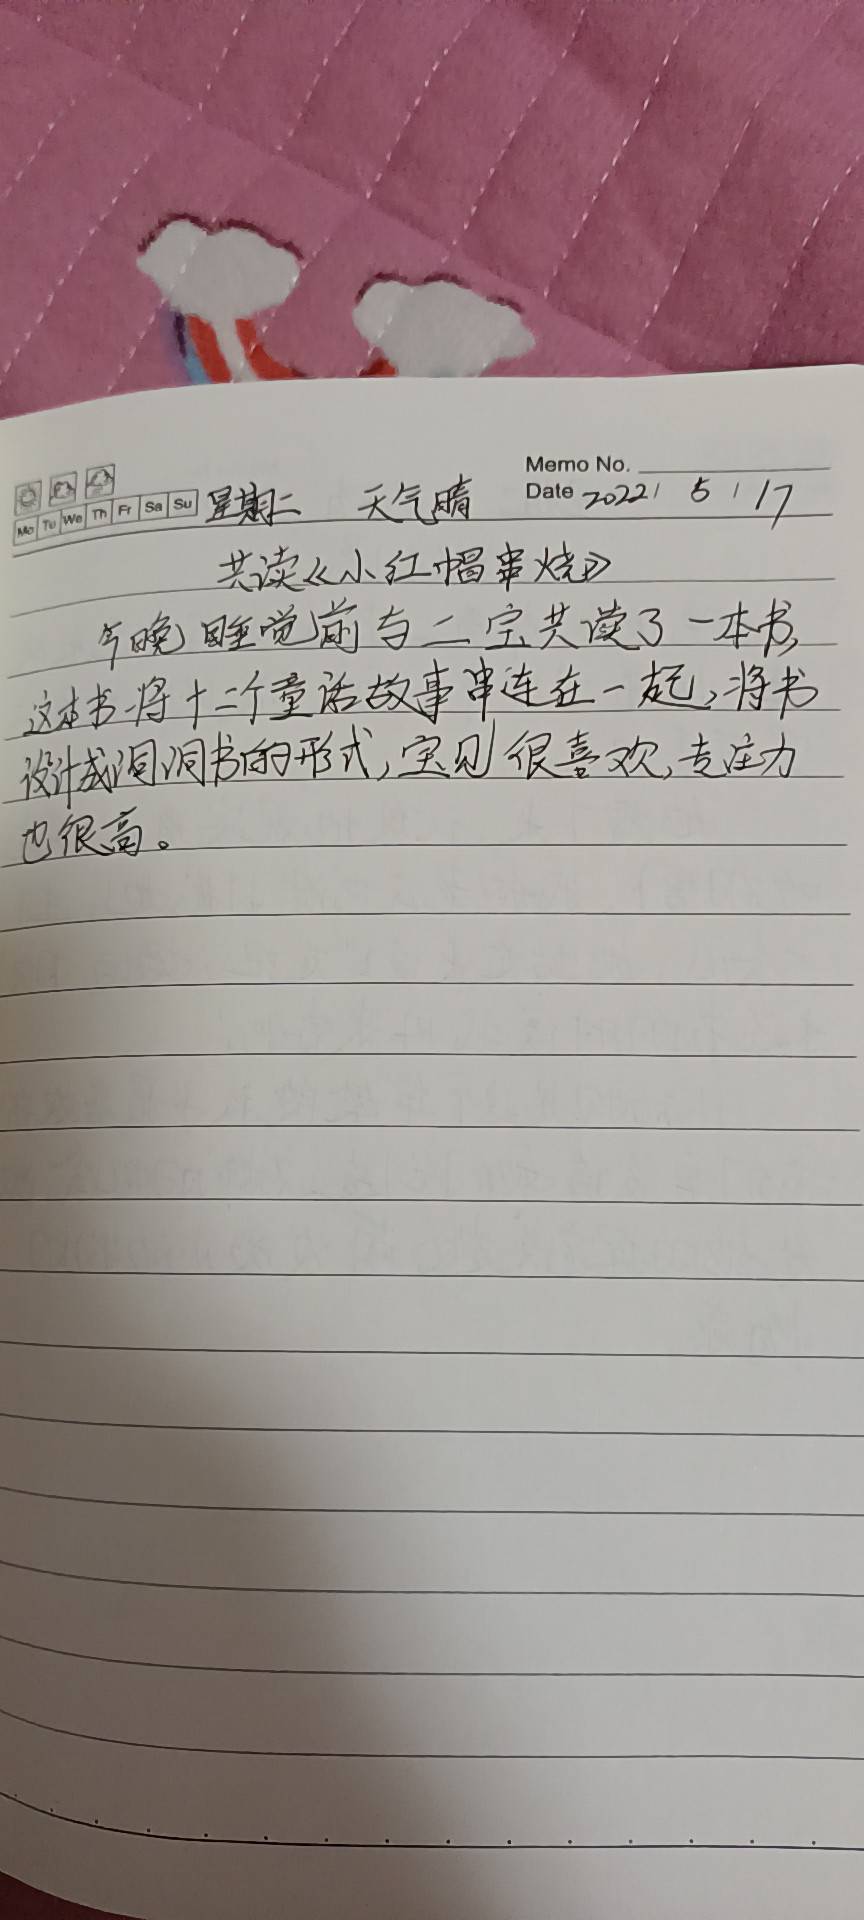 Memo No.
Mo Tu We Th Fr Sa Su 星期二 天气晴 Date 2022 / 5 / 17
共读《小红帽串烧》
今晚睡觉前与二宝共读了一本书,
这本书将十二个童话故事串连在一起,将书
设计成洞洞书的形式,宝贝很喜欢,专注力
也很高。